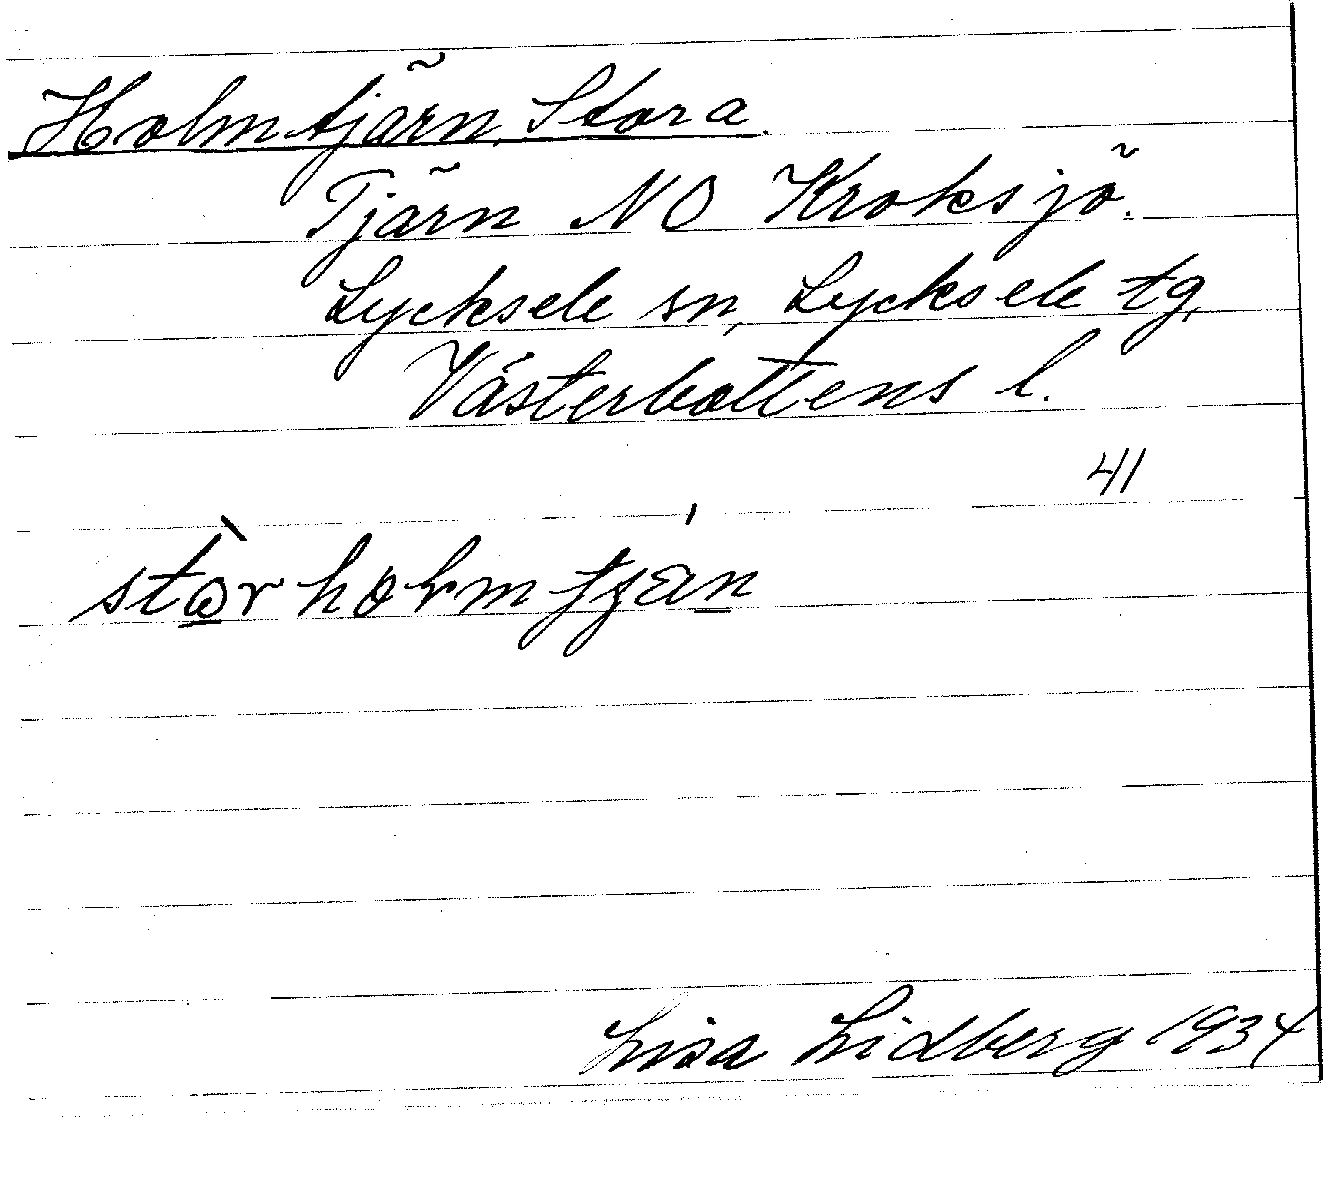 Holmtjärn, Stora.
Tjärn NO Kroksjö.
Lycksele sn, Lycksele tg,
Västerbottens l.
41
Lisa Lidberg 1934